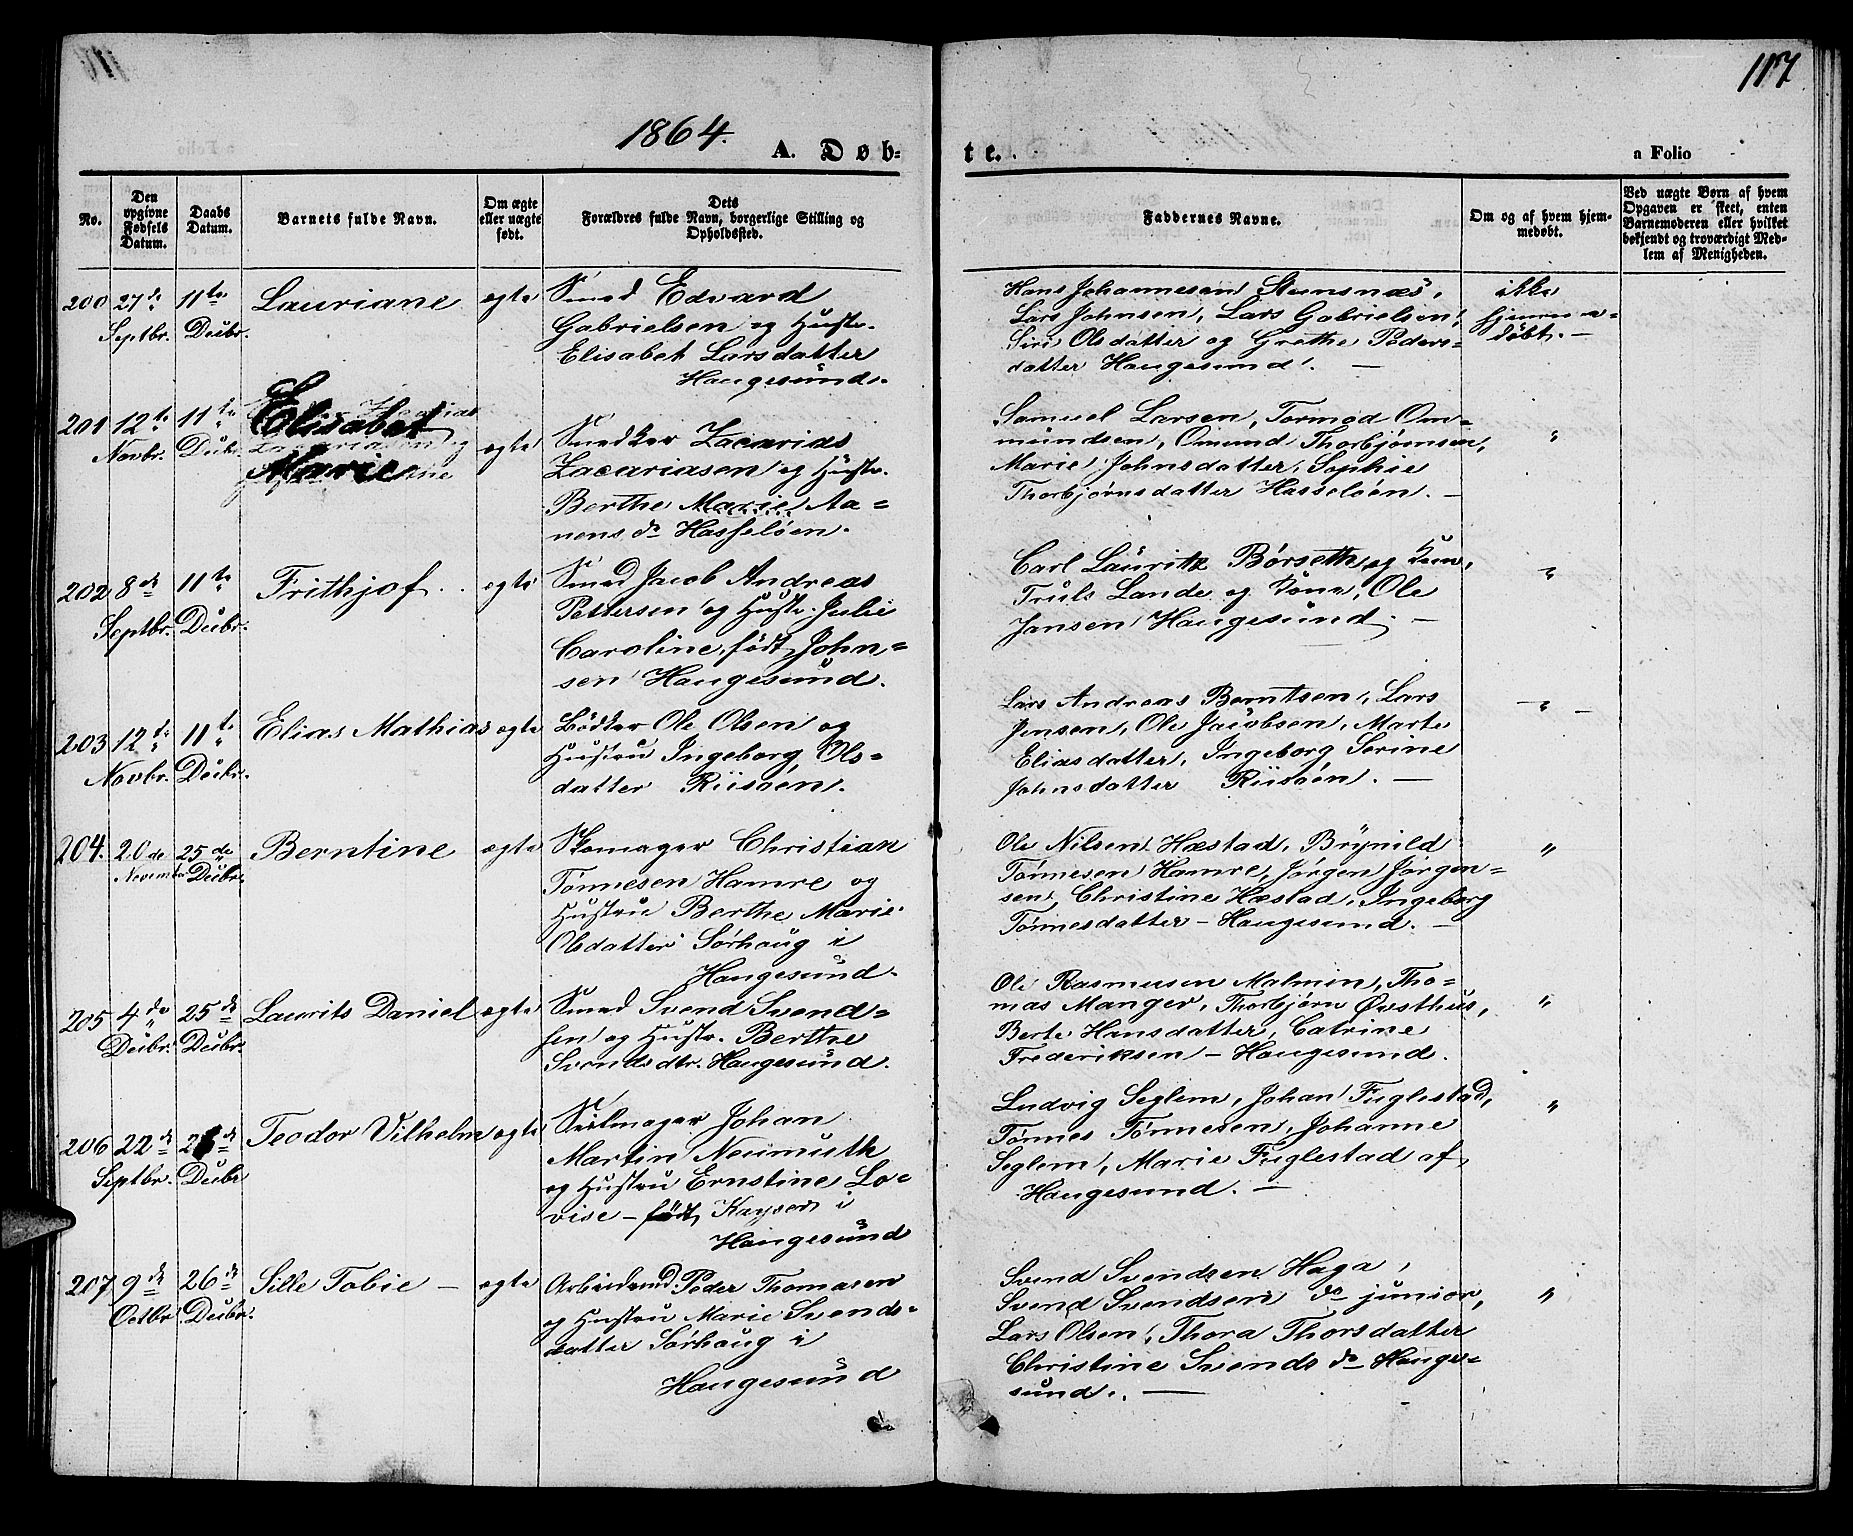 117
1864.
A. Døb-
te.
a Folio
No.
Den
opgivne
Fødsels
Datum.
Daabs
Datum.
Barnets fulde Navn.
Om ægte
eller uægte
født.
Dets
Forældres fulde Navn, borgerlige Stilling og
Opholdssted.
Faddernes Navne.
Om og af hvem hjem-
medøbt.
Ved uægte Børn af hvem
Opgaven er skeet, enten
Barnemoderen eller hvilket
bekjendt og troværdigt Med-
lem af Menigheden.
200 27de 11te Lauriane ægte Smed Edvard
Septbr. Decbr. Gabrielsen og Hustr.
Elisabet Larsdatter
Haugesund.
Hans Johannesen
Lars Johnsen, Lars Gabrielsen,
Siri Olsdatter og Grethe Peders-
datter Haugesund. —
ikke
hjemme-
døbt. —
201 12te 11te Elisabet ægte Snedker Zacarias
Novbr. Decbr. Marie Zacariasen og Hustr.
Berthe Marie Aa-
nens dr Hasseløen.
Samuel Larsen, Tormod Om-
mundsen, Omund Thorbjørnsen,
Marie Johnsdatter, Sophie
Thorbjørnsdatter Hasseløen. —
"
202 8de 11te Frithjof. ægte Smed Jacob Andreas
Septbr. Decbr. Pettersen og Hustr. Julie
Caroline, født John-
sen Haugesund.
Carl Lauritz Børseth og Kone,
Truls Lande og Kone, Ole
Jansen Haugesund. —
"
203 12te 11te Elias Mathias ægte Bødker Ole Olsen og
Novbr. Decbr. Hustru Ingeborg Ols-
datter Riisøen.
Lars Andreas Berntsen, Lars
Jensen, Ole Jacobsen, Marte
Eliasdatter, Ingeborg Serine
Johnsdatter Riisøen. —
— " —
204. 20de 25de Berntine ægte Skomager Christian
November Decbr. Tønnesen Hamre og
Hustru Berthe Marie
Olsdatter Sørhaug i
Haugesund.
Ole Nilsen Hæstad, Brynild
Tønnesen Hamre, Jørgen Jørgen-
sen, Christine Hæstad, Ingeborg
Tønnesdatter – Haugesund. —
"
205 4de 25de Laurits Daniel ægte Smed Svend Svend-
Decbr. Decbr. sen og Hustr. Berthe
Svendsdtr. Haugesund.
Ole Rasmussen Malmin, Tho-
mas Manger, Thorbjørn Øvsthus,
Berte Hansdatter, Catrine
Frederiksen – Haugesund.
"
206 22de Teodor Vilhelm ægte Seilmager Johan
Septbr. Decbr Martin Neumuth
og Hustru Ernstine Lo-
vise – født Kayser i
Haugesund
Ludvig Seglem, Johan Fuglestad,
Tønnes Tønnesen, Johanne
Seglem, Marie Fuglestad af
Haugesund. —
"
207 9de 26de Sille Tobie — ægte Arbeidsmd. Peder Thomasen
Octbr Decbr. og Hustru Marie Svends-
datter Sørhaug i
Haugesund
Svend Svendsen Haga,
Svend Svendsen do junior,
Lars Olsen, Thora Thorsdatter
Christine Svends dr Hauge-
sund. —
"